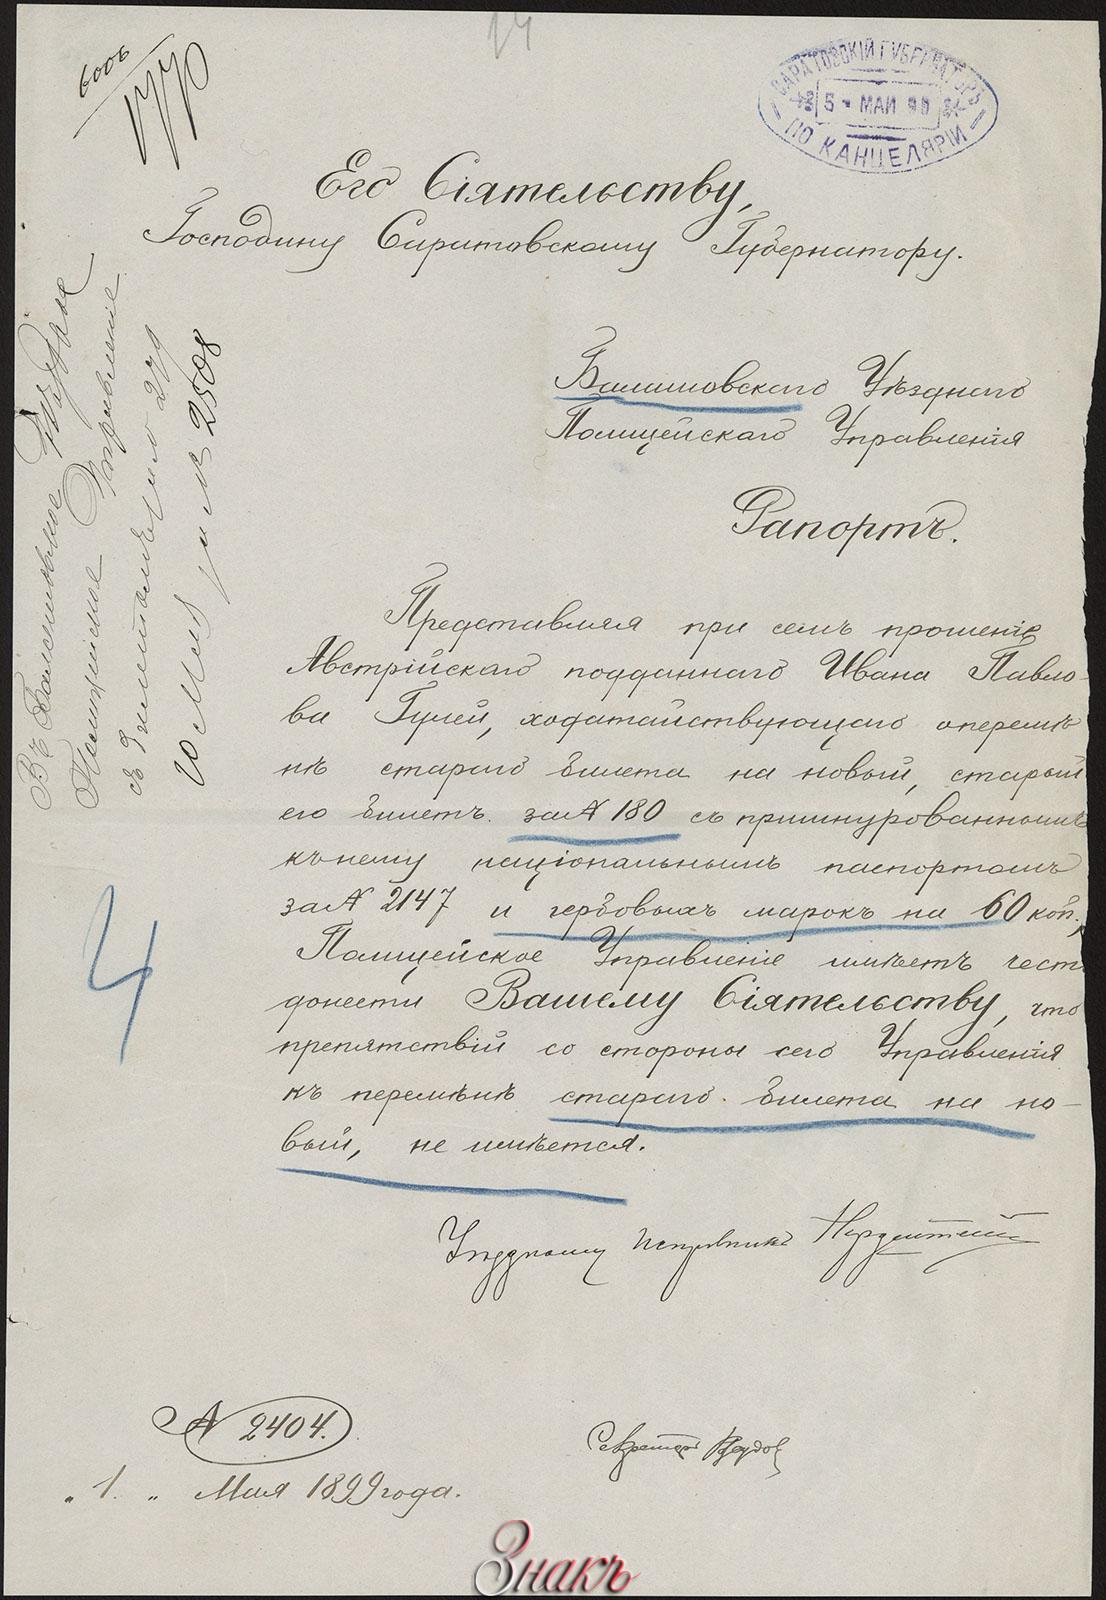 14
6006
САРАТОВСКІЙ ГУБЕРНАТОРЪ
5 - МАИ 99
ПО КАНЦЕЛЯРІИ
Его Сіятельству,
Господину Саратовскому Губернатору.
Балашовскаго Уѣзднаго
Полицейскаго Управленія
Рапортъ.
Представляя при семъ прошеніе
Австрійскаго подданнаго Ивана Павло-
ва Гулей, ходатайствующаго о перемѣ
нѣ стараго билета на новый, старый
его билетъ за № 180 съ пришнурованнымъ
къ нему національнымъ паспортомъ
за № 2147 и гербовыхъ марокъ на 60 коп.,
Полицейское Управленіе имѣетъ чест
донести Вашему Сіятельству, что
препятствій со стороны сего Управленія
къ перемѣнѣ стараго билета на но-
вый, не имѣется.
Исправникъ
Секретарь
№ 2404.
"1." Мая 1899 года.
Въ Балашовское
Полицейское Управленіе
съ
10 Мая № 2508
4
Знакъ